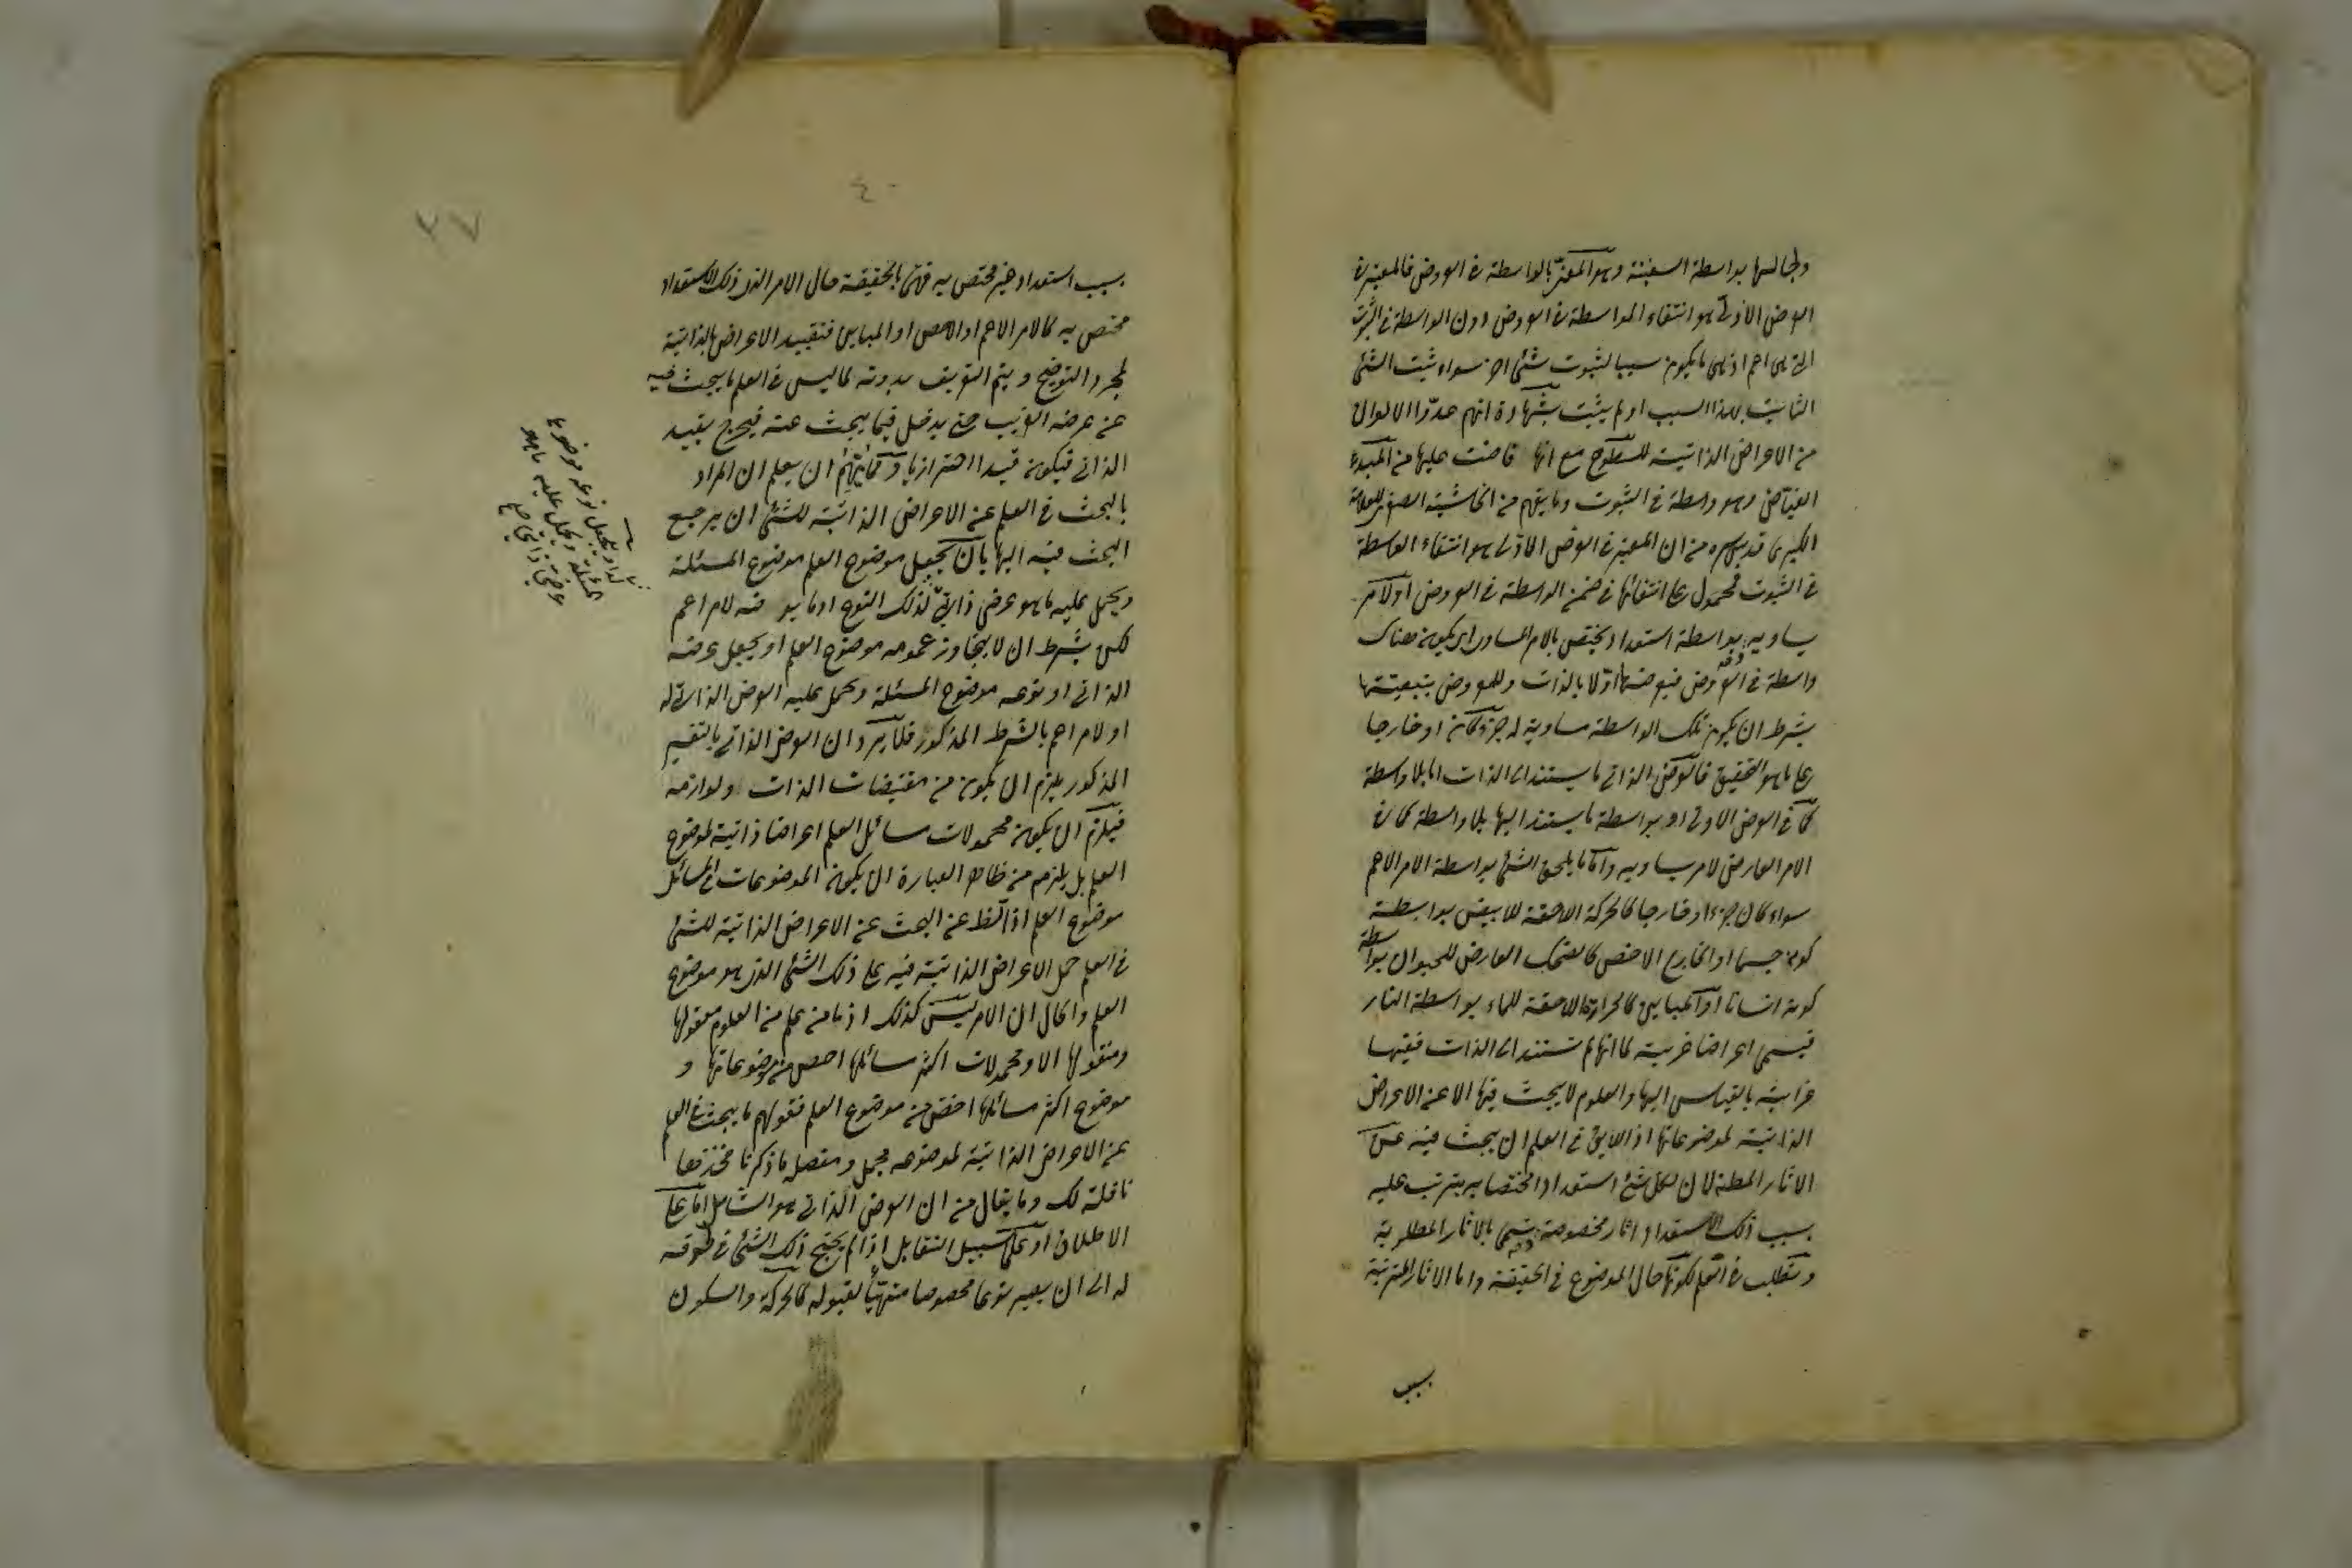 ولجالسها بواسطة السفينة وهو المعبّر بالواسطة في العروض فالمعتبر في
العرض الاوّلي هو انتفاء الواسطة في العروض دون الواسطة في الثبوت
التي هي اعم اذ هي ما يكون سببا لثبوت شئ اخر سواء ثبت الشئ
الثابت لهذا السبب او لم يثبت بشهادة انهم عدّوا الالوان
من الاعراض الذاتية للسطوح مع انها فاضت عليها من المبدء
الفيّاض وهو واسطة في الثبوت وما يفهم من الحاشية الصغرى للعلامة
قدس سره من ان المعتبر في العرض الاوّلي هو انتفاء الواسطة
في الثبوت محمول على انتفائها في ضمن الواسطة في العروض او لامر
يساويه بواسطة استعداد يختص بالامر المساوى اى يكون هناك
واسطة في العروض فيعرضها اوّلا بالذات وللمعروض بتبعيتها
بشرط ان يكون تلك الواسطة مساوية له جزء كان او خارجا
على ما هو التحقيق فالعرض الذاتي ما يستند الى الذات اما بلا واسطة
كما في العرض الاولي او بواسطة ما يستند اليها بلا واسطة كما في
الامر العارض لامر يساويه واما ما يلحق الشئ بواسطة الامر الاعم
سواء كان جزءا او خارجا كالحركة اللاحقة للابيض بواسطة
كونه جسما او الخارج الاخص كالضحك العارض للحيوان بواسطة
كونه انسانا او المباين كالحرارة اللاحقة للماء بواسطة النار
فيسمى اعراضا غريبة لما انها لم تستند الى الذات ففيها
غرابة بالقياس اليها والعلوم لا يبحث فيها الا عن الاعراض
الذاتية لموضوعاتها اذ اللايق في العلم ان يبحث فيه عن
الاثار المطلوبة لان لكل شئ استعدادا مختصا به يترتب عليه
بسبب ذلك الاستعداد اثار مخصوصة تسمى بالاثار المطلوبة
وتطلب في العلم لكونها حال الموضوع في الحقيقة واما الاثار المترتبة
بسبب
٤٠
٢٧
بسبب استعداد غير مختص به فهى بالحقيقة حال الامر الذى ذلك الاستعداد
مختص به كالامر الاعم او الاخص او المباين فتقييد الاعراض بالذاتية
لمجرد التوضيح ويتم التعريف بدونه لما ليس في العلم ما يبحث فيه
عن عرضه الغريب حتى يدخل فيما يبحث عنه فيخرج بقيد
الذاتي فيكون قيدا احترازيا ان يعلم ان المراد
بالبحث في العلم عن الاعراض الذاتية للشئ ان يرجع
البحث فيه اليها بان يجعل موضوع العلم موضوع المسئلة
ويحمل عليه ما هو عرض ذاتيّ لذلك النوع او ما يعرضه لامر اعم
لكن بشرط ان لا يتجاوز عمومه موضوع العلم او يجعل عرضه
الذاتي او نوعه موضوع المسئلة ويحمل عليه العرض الذاتي له
او لامر اعم بالشرط المذكور فلا يرد ان العرض الذاتي بالتفسير
المذكور يلزم ان يكون من مقتضيات الذات ولوازمه
فيلزم ان يكون محمولات مسائل العلم اعراضا ذاتية لموضوع
العلم بل يلزم من ظاهر العبارة ان يكون الموضوعات في المسائل
موضوع العلم اذ الظ عن البحث عن الاعراض الذاتية للشئ
في العلم حمل الاعراض الذاتية فيه على ذلك الشئ الذى هو موضوع
العلم والحال ان الامر ليس كذلك اذ ما من علم من العلوم معقولها
ومنقولها الا ومحمولات اكثر مسائلها اخص من موضوعاتها و
موضوع اكثر مسائلها اخص من موضوع العلم فقولهم ما يبحث في العلم
عن الاعراض الذاتية لموضوعه مجمل ومفصله ما ذكرنا فخذها
نافلة لك وما يقال من ان العرض الذاتي هو الشامل اما على
الاطلاق او على سبيل التقابل اذا لم يحتج ذلك الشئ في لحوقه
له الى ان يصير نوعا مخصوصا متهيّأ لقبوله كالحركة والسكون
او يجعل نوعه موضوع
المسئلة ويحمل عليه ما هو
عرض ذاتي صح